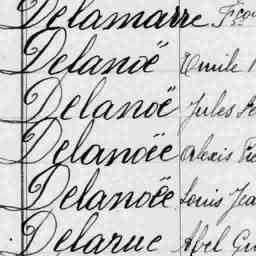 Delamarre
Delanoë Emile
Delanoë Jules
Delanoëe Alexis
Delanoëe Louis
Delarue Abel